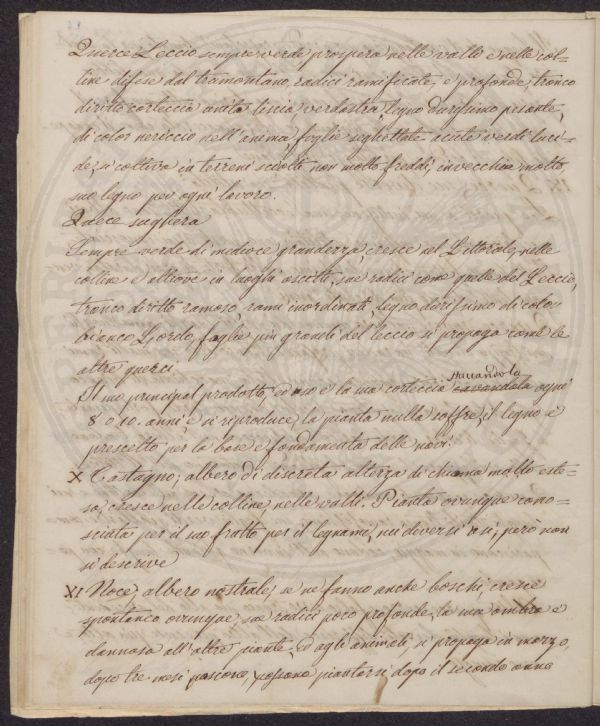 Querce Leccio sempre verde prospera nelle valli e nelle col=
line difese dal tramontano, radici ramificate, e profonde, tronco
diritto corteccia unita liscia, verdastra, legno durissimo pesante,
di color nericcio nell'anima, foglie seghettate acute verdi luci=
de; si coltiva in terreni sciolti non molto freddi, invecchia molto,
suo legno per ogni lavoro.
Quece sughera
Sempre verde di medioce grandezza, cresce nel Littorale, nelle
colline e altrove in luoghi ascitti, sue radici come quelle del Leccio,
tronco diritto ramoso, rami inordinati, legno durissimo di colo
bianco, foglie più grandi del leccio si propaga come le
altre querci.
Il suo principal prodotto, ed uso e la sua corteccia staccandola ogni
8 o 10. anni, e si riproduce, la pianta nulla soffre, il legno e
prescelto per la base e fondamenta delle navi.
X Castagno; albero di discreta altezza di chioma molto este=
sa, cresce nelle colline, nelle valli. Pianta ovunque cono=
sciuta per il suo frutto per il legnami, nei diversi usi, però non
si descrive
XI Noce, albero nostrale, se ne fanno anche boschi, cresce
spontaneo ovunque, sue radici poco profonde, la sua ombra e
dannosa all'altre piante, ed agli animali, si propaga in marzo,
dopo tre mesi nascono, possono piantarsi dopo il secondo anno